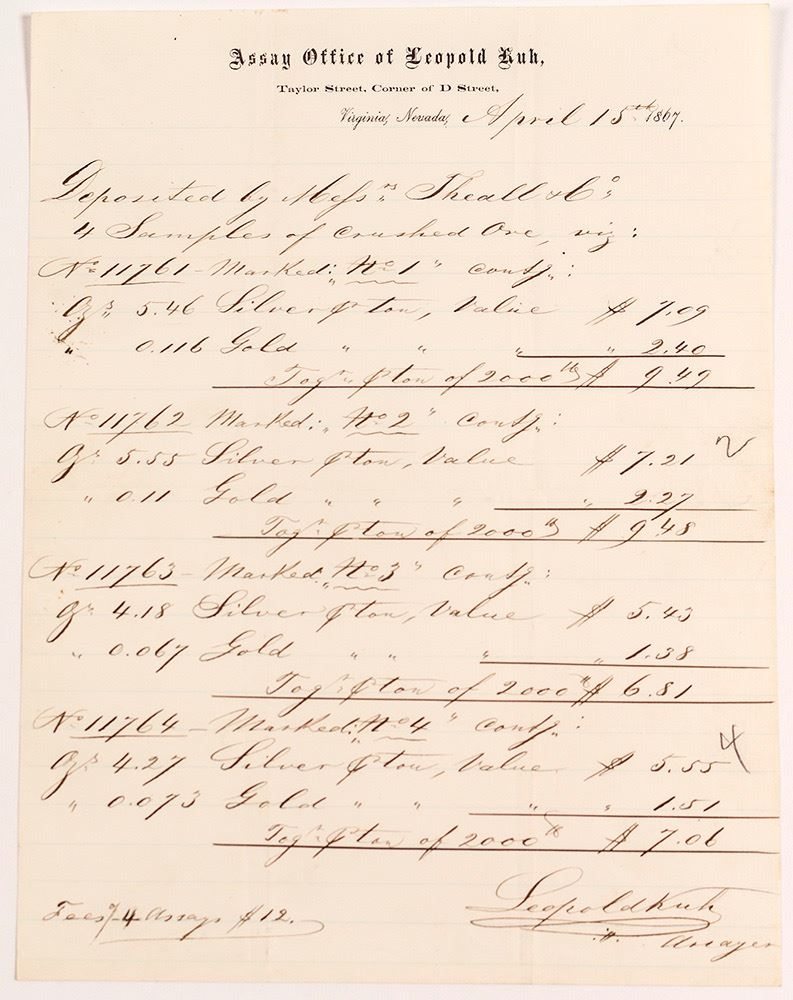 Assay Office of Leopold Kuh,
Taylor Street, Corner of D Street,
Virginia, Nevada, April 15th 1867.
Deposited by Messrs Theall & Co
4 Samples of Crushed Ore, viz:
No 11761 - Marked: "No 1" contg:
Ozs 5.46 Silver ₱ ton, Value $ 7.09
" 0.116 Gold " " " " 2.40
Togr ₱ ton of 2000 lb $ 9.49
No 11762 Marked: "No 2" contg:
Ozs 5.55 Silver ₱ ton, Value $ 7.21 2
" 0.11 Gold " " " " 2.27
Togr ₱ ton of 2000 lb $ 9.48
No 11763 - Marked: "No 3" contg:
Ozs 4.18 Silver ₱ ton, Value $ 5.43
" 0.067 Gold " " " " 1.38
Togr ₱ ton of 2000 lb $ 6.81
No 11764 - Marked: "No 4" contg:
Ozs 4.27 Silver ₱ ton, Value $ 5.55 4
" 0.073 Gold " " " " 1.51
Togr ₱ ton of 2000 lb $ 7.06
Leopold Kuh
Fees f 4 Assays $12.
Assayer